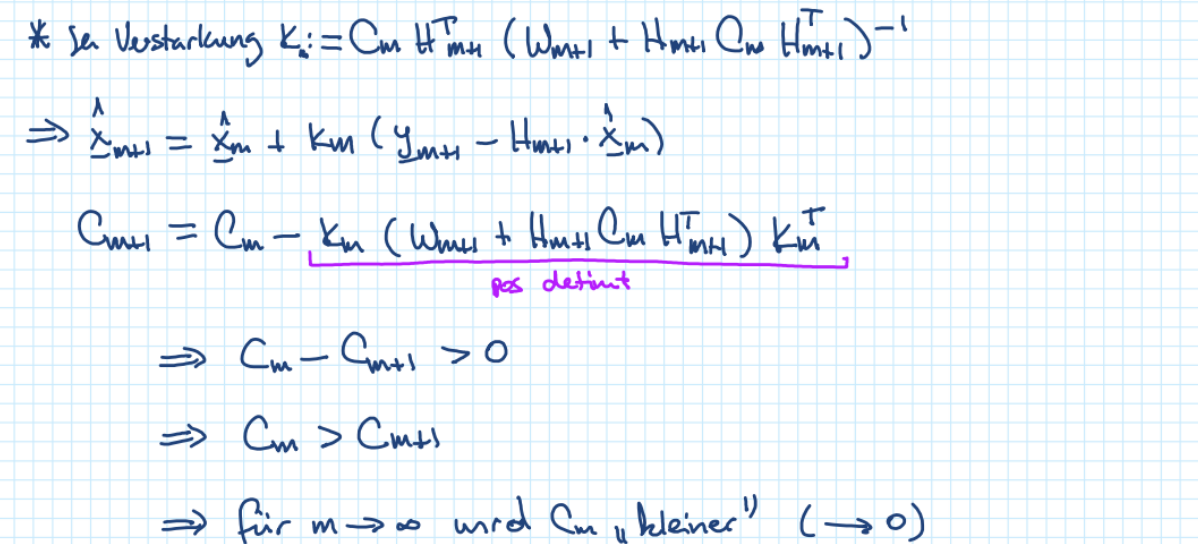 * Sei Verstärkung K := Cₘ Hᵀₘ₊₁ (Wₘ₊₁ + Hₘ₊₁ Cₘ Hᵀₘ₊₁)⁻¹
⇒ x̲̂ₘ₊₁ = x̲̂ₘ + Kₘ (y̲ₘ₊₁ − Hₘ₊₁ · x̲̂ₘ)
Cₘ₊₁ = Cₘ − Kₘ (Wₘ₊₁ + Hₘ₊₁ Cₘ Hᵀₘ₊₁) Kₘᵀ
pos definit
⇒ Cₘ − Cₘ₊₁ > 0
⇒ Cₘ > Cₘ₊₁
⇒ für m → ∞ wird Cₘ „kleiner" (→ 0)